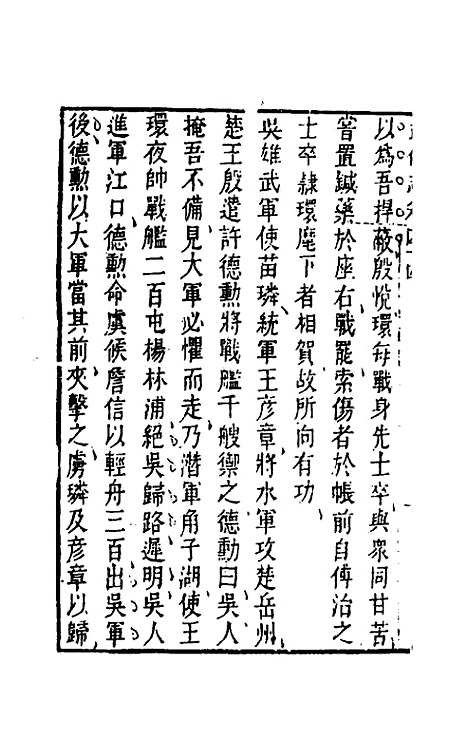 以為吾捍蔽殷悅環每戰身先士卒與衆同甘苦
甞置鍼藥於座右戰罷索傷者於帳前自傅治之
士卒隷環麾下者相賀故所向有功
吳雄武軍使苗璘統軍王彥章將水軍攻楚岳州
楚王殷遣許德勲將戰艦千艘禦之德勳曰吳人
掩吾不備見大軍必懼而走乃潛軍角子湖使王
環夜帥戰艦二百屯楊林浦絕吳歸路遲明吳人
進軍江口德勲命虞候詹信以輕舟三百出吳軍
後德勲以大軍當其前夾擊之虜璘及彥章以歸